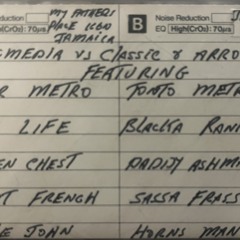 MY FATHERS
PLACE LEGO
JAMAICA
B
Noise Reduction
High(CrO2) 70µs
EQ High(CrO2) 70µs
MEDIA VS CLASSIC & ARRO
FEATURING
R METRO TONTO METR
LIFE BLACKA RANK
EN CHEST DADDY ASHMA
T FRENCH SASSA FRASS
E JOHN HORNS MAN